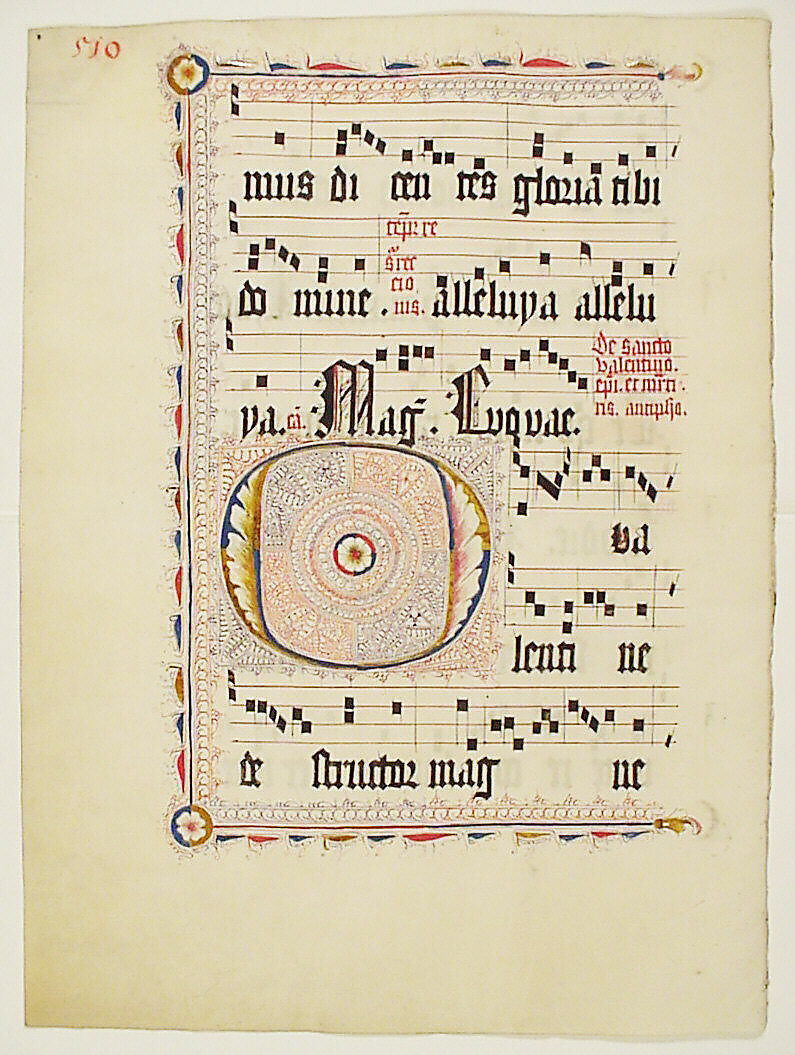 510
mus di cen tes gloria tibi
tēpr re
do mine . alleluya allelu
srrec
cio
nis.
ya. cā. Mag̃. Evovae.
De sancto
valentino.
epi. et mrti
ris. antipho.
O va
lenti ne
de structor mag ne